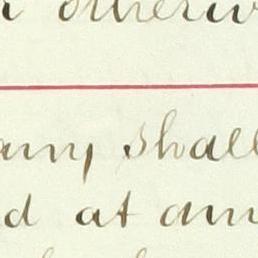 otherw
any shall
d at an